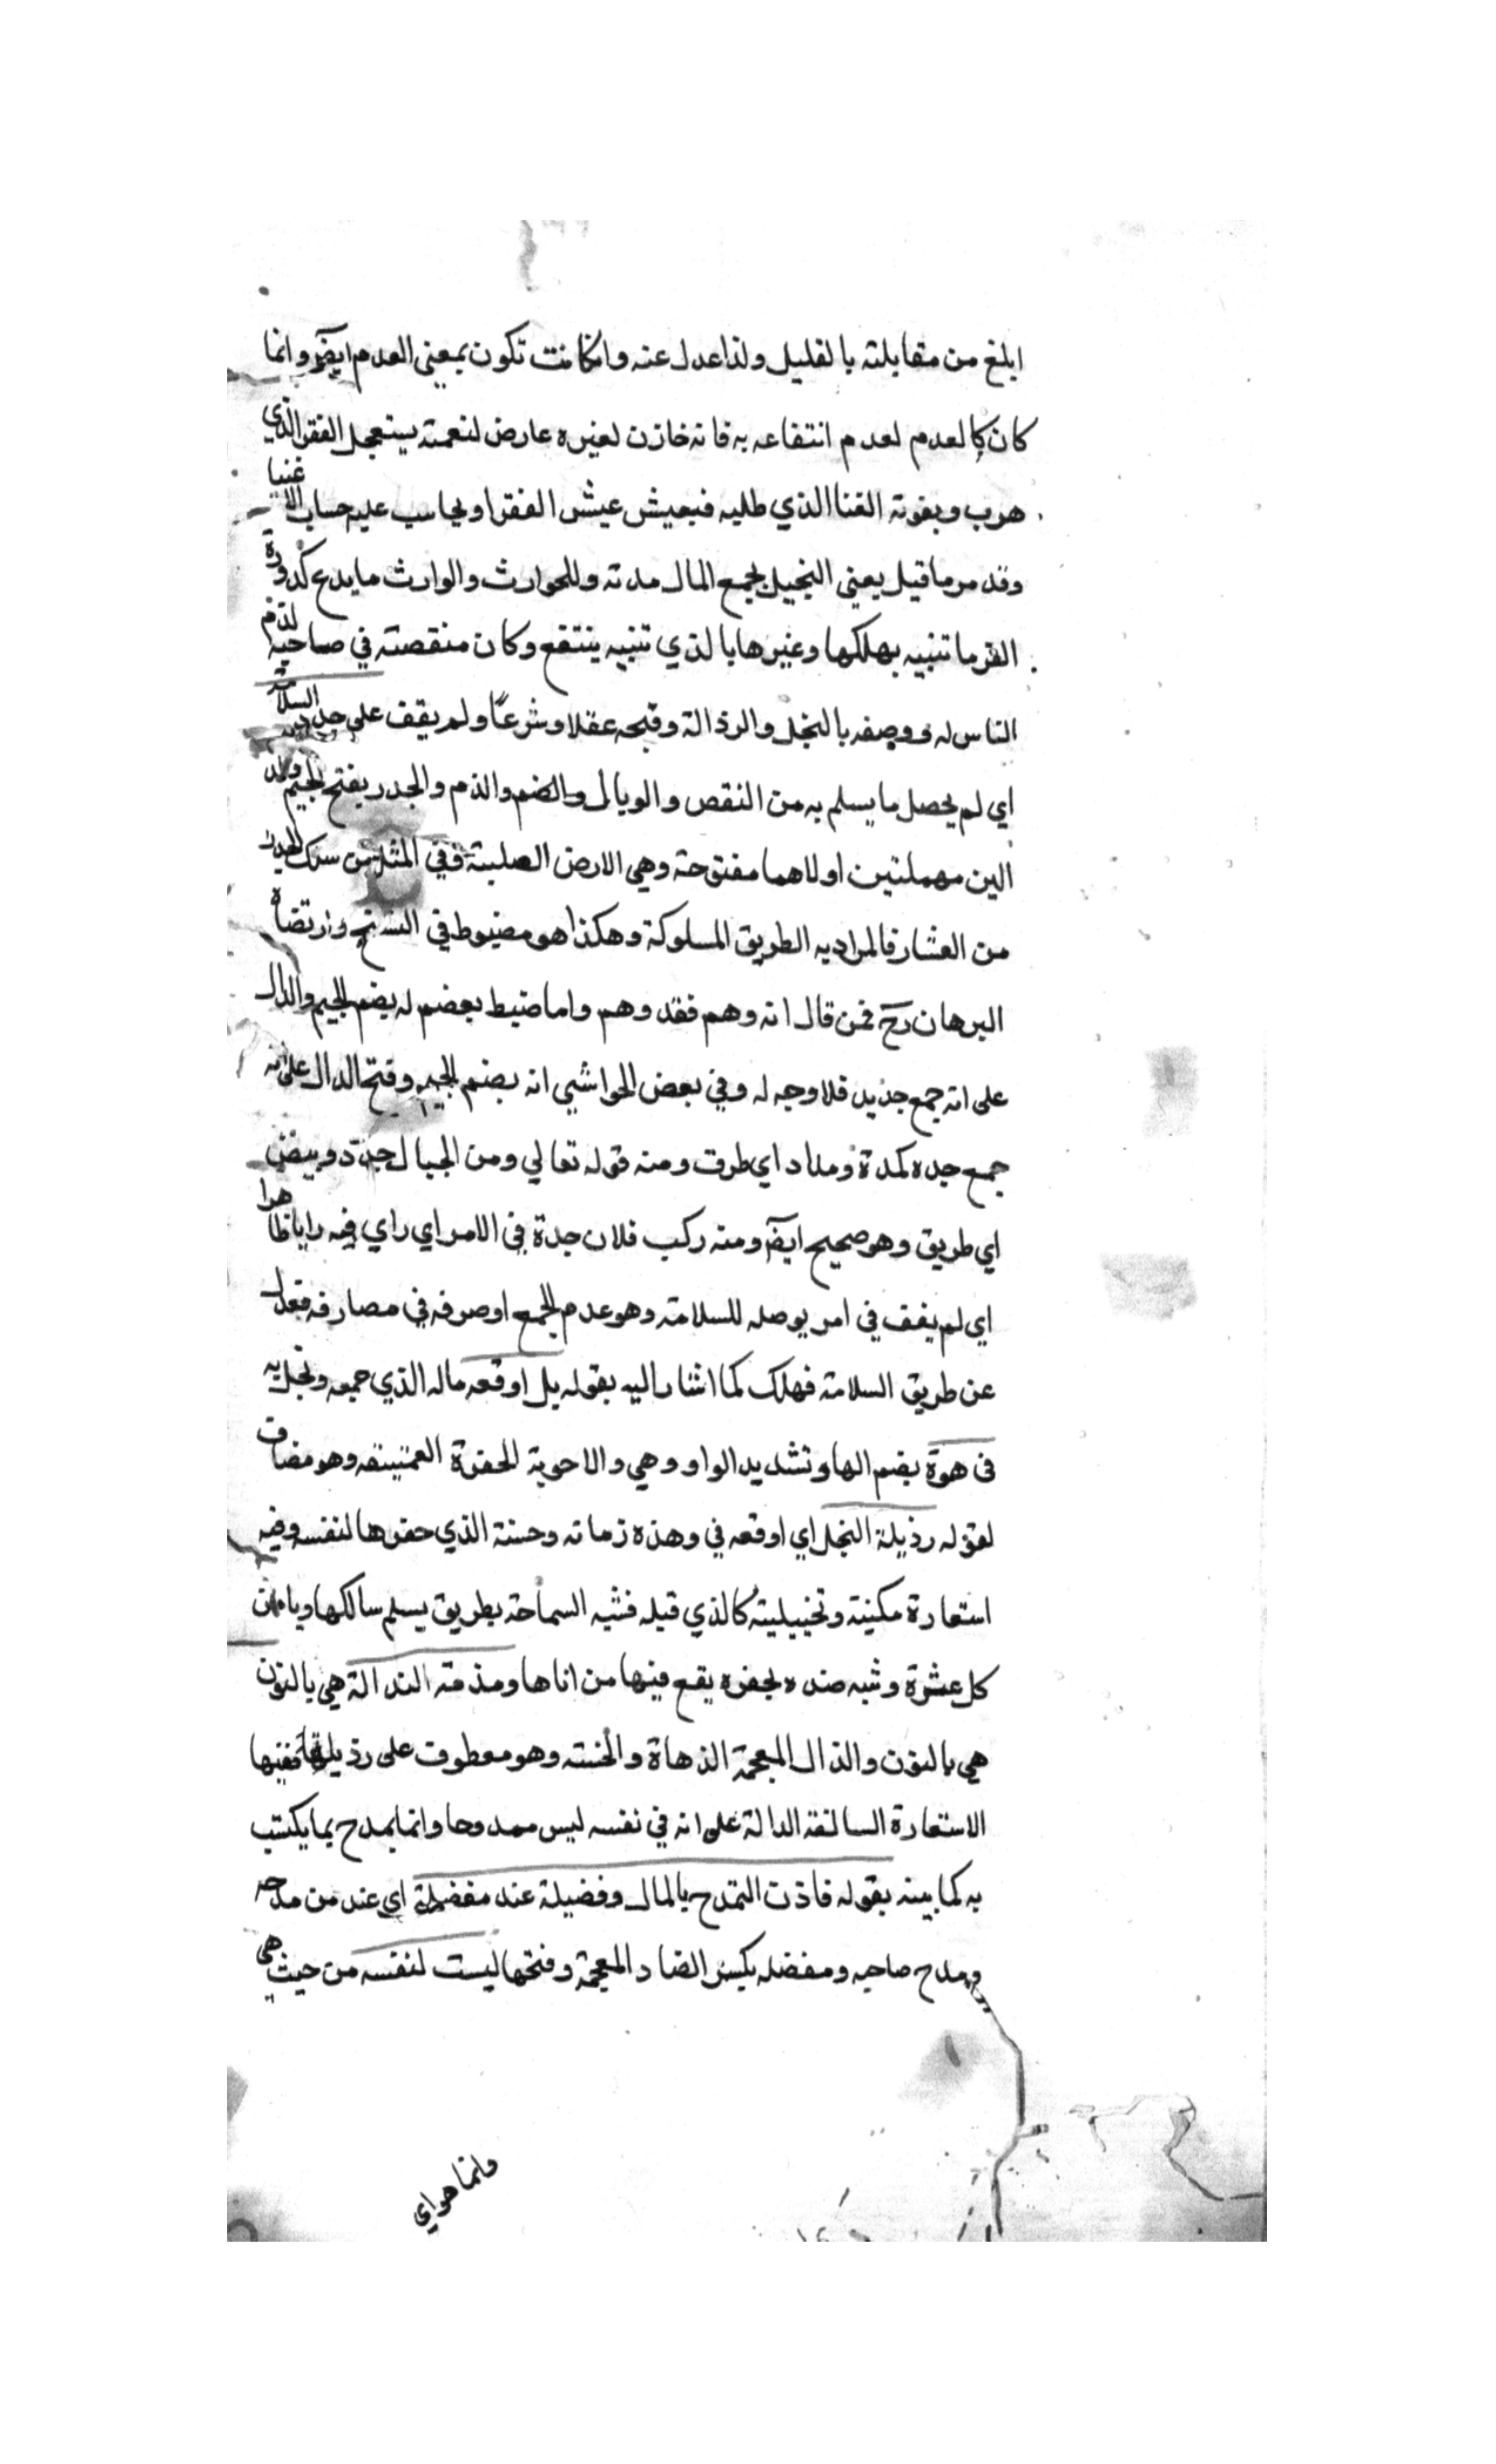 ابلغ من مقابلته بالقليل ولذا عدل عنه وان كانت تكون بمعنى العدم ايضا وانما
كان كالعدم لعدم انتفاعه به فانه خازن لغيره عارض لنعمته يستعجل الفقر الذي
هرب ويفوته الغنا الذي طلبه فيعيش عيش الفقرا ويحاسب عليه حساب الاغنيا
وقد مر ما قيل يعني البخيل بجمع المال مدته وللحوارث والوارث ما يدع كدورة
القز ما تبنيه يهلكها وغيرها بالذي تبنيه ينتفع وكان منقصته في صاحبه لذم
الناس له ووصفه بالبخل والرذالة وقبحه عقلا وشرعًا ولم يقف على جدد السلامة
اي لم يحصل ما يسلم به من النقص والوبال والضم والذم والجدد بفتح الجيم ودال
الين مهملتين اولاهما مفتوحة وهي الارض الصلبة وفي المثل من سلك الجدد
من العثار فالمراد به الطريق المسلوكة وهكذا هو مضبوط في النسخ وارتضاه
البرهان رح فمن قال انه وهم فقد وهم واما ضبط بعضهم له بضم الجيم والدال
على انه جمع جديد فلا وجه له وفي بعض الحواشي انه بضم الجيم وفتح الدال على انه
جمع جده كمدة ومداد اي طرف ومنه قوله تعالي ومن الجبال جدد وبيض
اي طريق وهو صحيح ايضا ومنه ركب فلان جدة في الامر اي راي فيه رايا ظاهرا
اي لم يقف في امر يوصله للسلامة وهو عدم الجمع او صرفه في مصارفه فعدل
عن طريق السلامة فهلك كما اشار اليه بقوله بل اوقعه ماله الذي جمعه وبخل به
في هوة بضم الها وتشديد الواو وهي والاحوية الحفرة العميقة وهو مضاف
لقوله رذيلة البخل اي اوقعه في وهذه زمانه وخسة الذي حفرها لنفسه وفيه
استعارة مكنية وتخييلية كالذي قبله فشبه السماحة بطريق يسلم سالكها ويامن
كل عشرة وشبه ضده بحفره يقع فيها من اتاها ومذمة النذالة هي بالنون
هي بالنون والذال المعجمة الذهاة والخسة وهو معطوف على رذيلة ففيها
الاستعارة السالفة الدالة على انه في نفسه ليس ممدوحا وانما يمدح بما يكتسب
به كما بينه بقوله فاذن التمدح بالمال وفضيلة عند مفضله اي عند من مدحه
ومدح صاحبه ومفضله بكسر الضاد المعجمة وفتحها ليست لنفسه من حيث هي
وانما هو اي